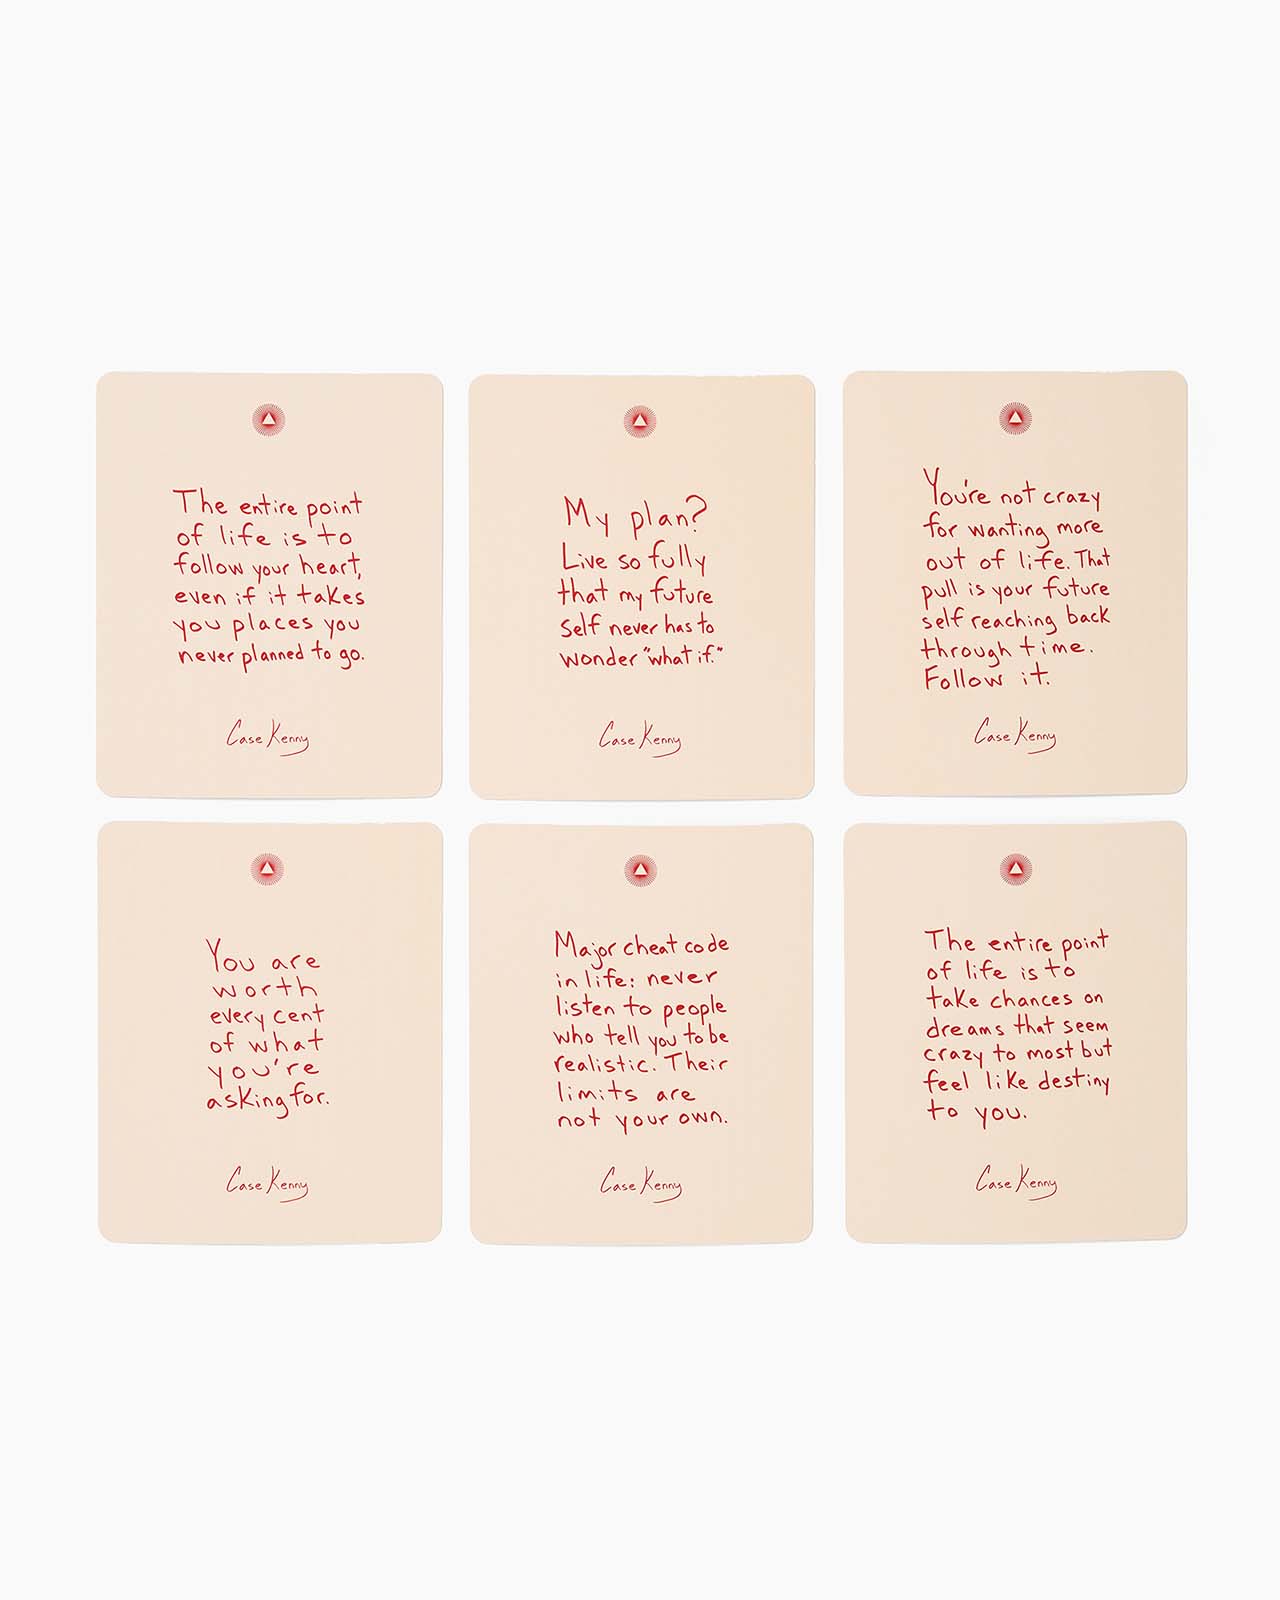 The entire point
of life is to
follow your heart,
even if it takes
you places you
never planned to go.
Case Kenny
My plan?
Live so fully
that my future
self never has to
wonder "what if."
Case Kenny
You're not crazy
for wanting more
out of life. That
pull is your future
self reaching back
through time.
Follow it.
Case Kenny
You are
worth
every cent
of what
you're
asking for.
Case Kenny
Major cheat code
in life: never
listen to people
who tell you to be
realistic. Their
limits are
not your own.
Case Kenny
The entire point
of life is to
take chances on
dreams that seem
crazy to most but
feel like destiny
to you.
Case Kenny